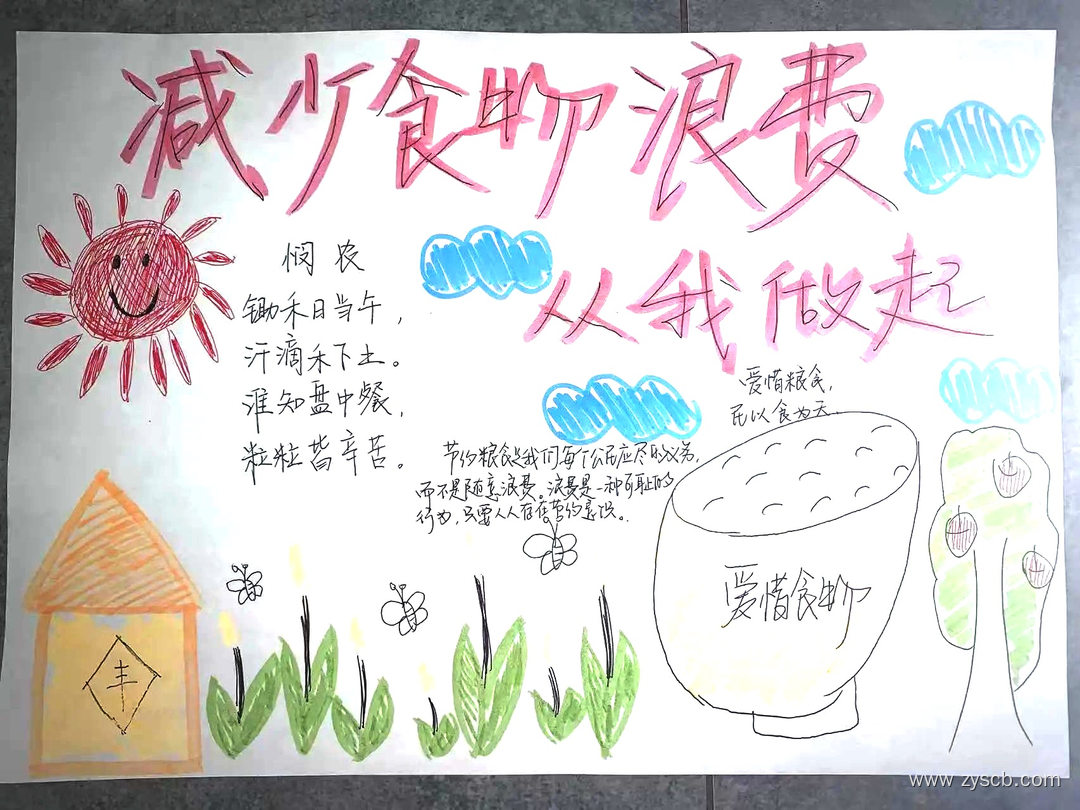 减少食物浪费
从我做起
悯农
锄禾日当午，
汗滴禾下土。
谁知盘中餐，
粒粒皆辛苦。
爱惜粮食，
民以食为天。
节约粮食是我们每个公民应尽的义务，
而不是随意浪费。浪费是一种可耻的
行为，只要人人存在节约意识。
爱惜食物
丰
www.zyscb.com